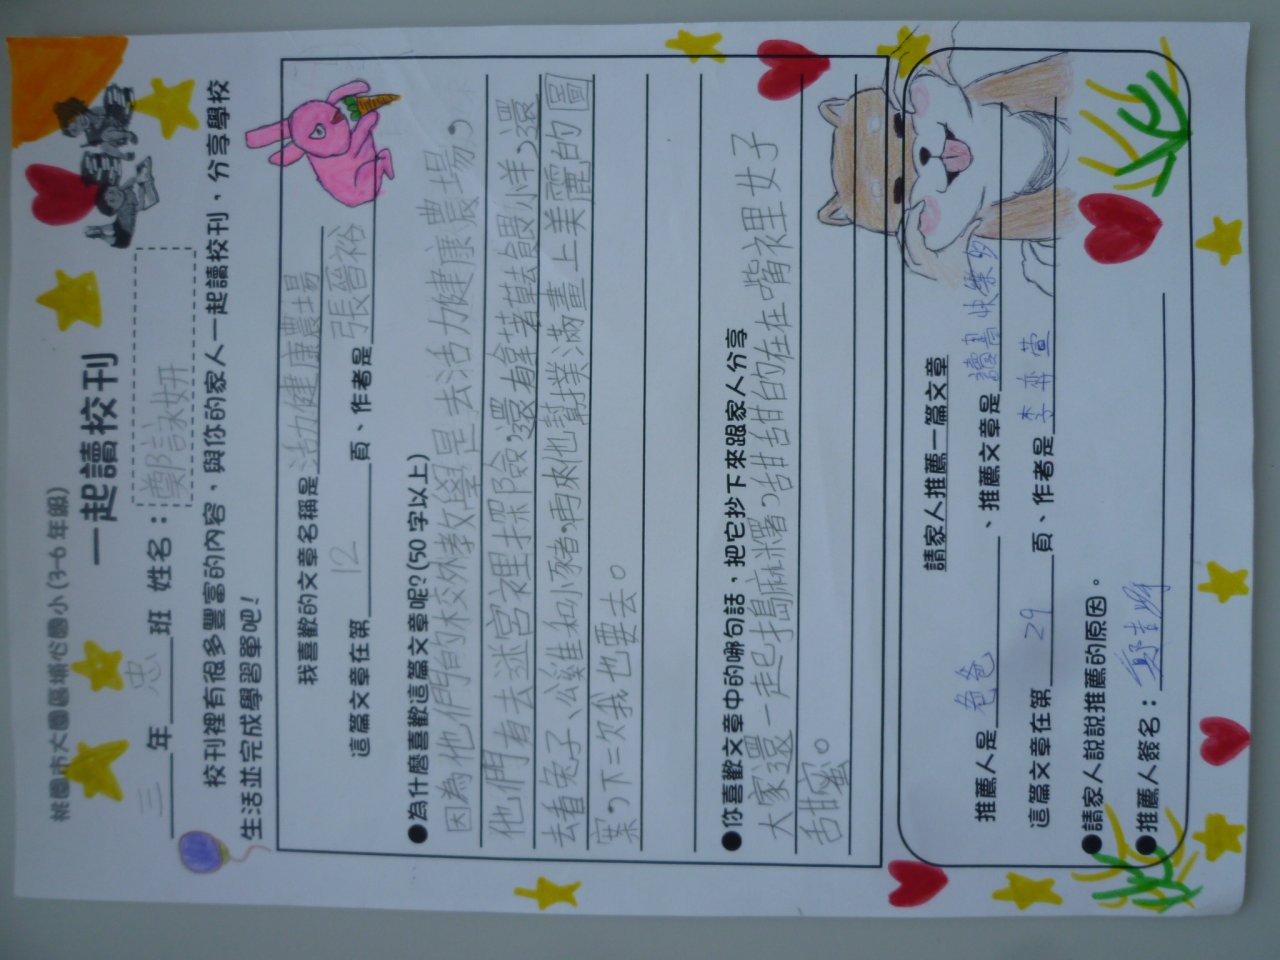 桃園市大園區埔心國小(3-6年級)
一起讀校刊
三年忠班 姓名：鄭詠妍
校刊裡有很多豐富的內容，與你的家人一起讀校刊，分享學校
生活並完成學習單吧！
我喜歡的文章名稱是活力健康農場
這篇文章在第12頁、作者是張晉裕
●為什麼喜歡這篇文章呢?(50字以上)
因為他們的校外教學是去活力健康農場，
他們有去迷宮裡探險，還有拿著草去餵小羊，還
去看兔子、公雞和小豬，再來他幫業滿畫上美麗的圖
案，下三次我也要去。
●你喜歡文章中的哪句話，把它抄下來跟家人分享
大家還一起搗麻糬，甜甜的在在嘴裡女子
甜蜜。
請家人推薦一篇文章
推薦人是爸爸、推薦文章是讀書快樂多
這篇文章在第29頁、作者是李萱
●請家人說說推薦的原因。
●推薦人簽名：鄭